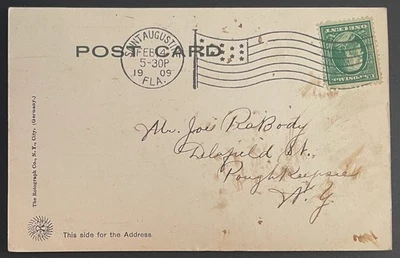 POST CARD
SAINT AUGUSTINE
FEB 4
5-30P
1909
FLA.
U.S. POSTAGE
ONE CENT
Mr. Jois RaBody
Delafield St.
Poughkeepsie
N. Y.
The Rotograph Co., N. Y. City. (Germany.)
This side for the Address